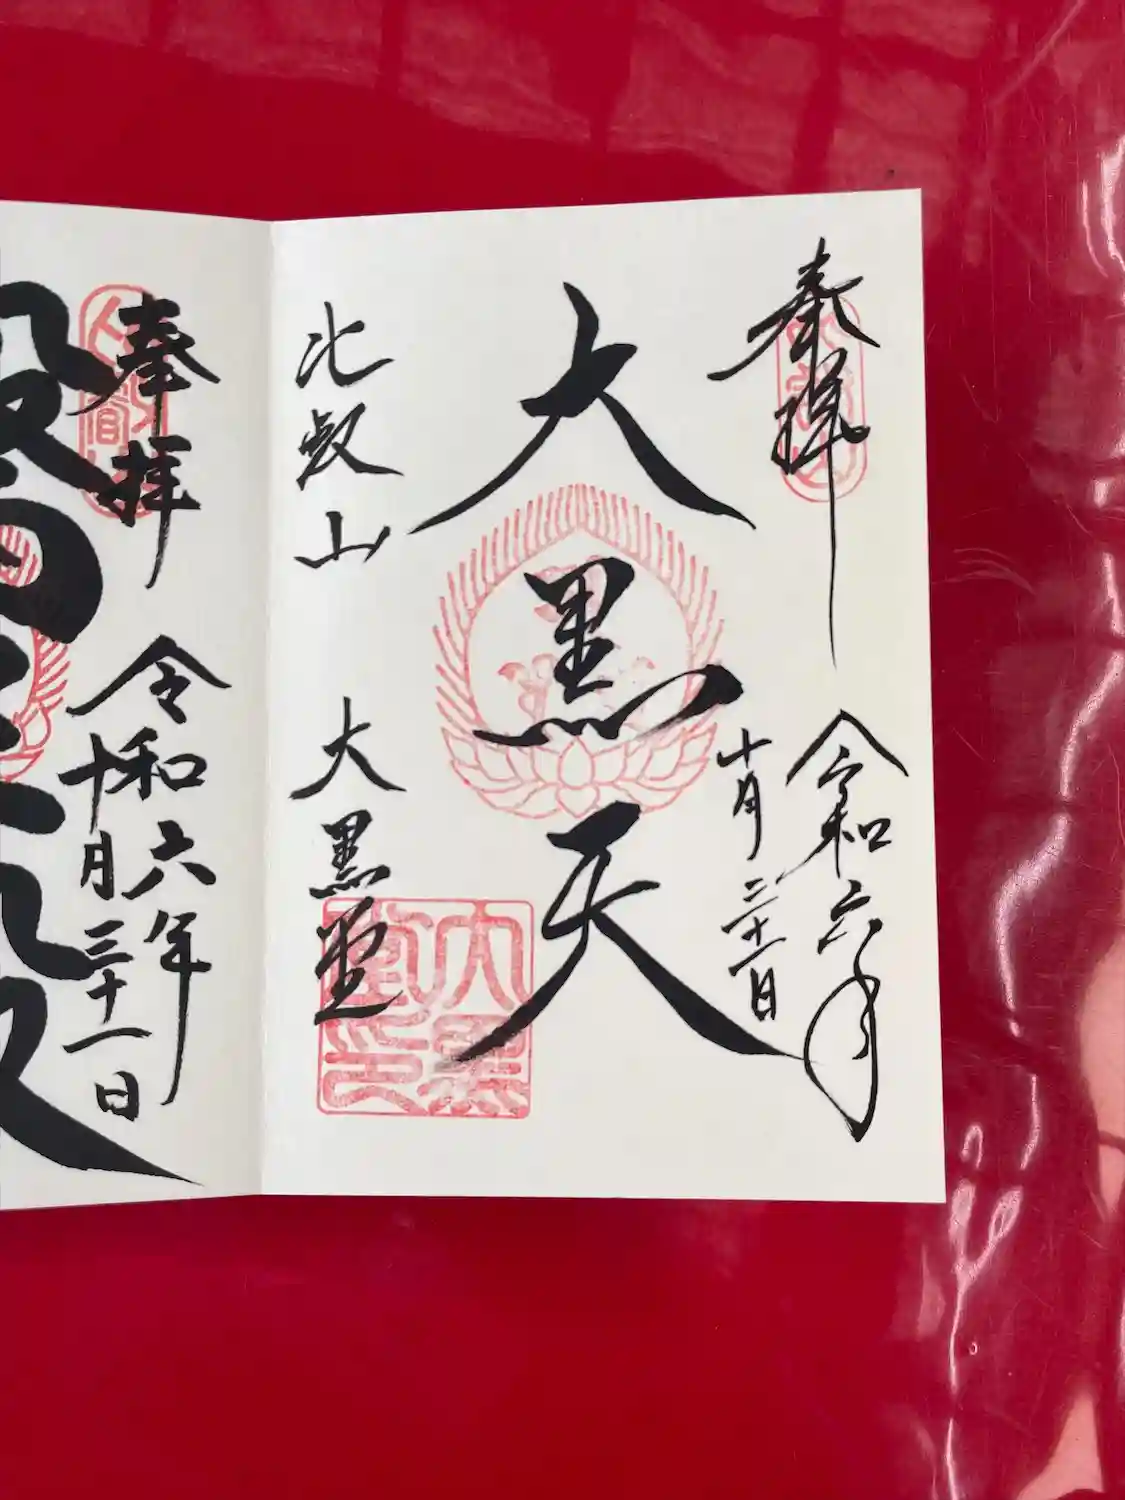 奉拝
令和六年
十月三十一日
大黒天
比叡山
大黒堂
大黒
堂印
奉拝
令和六年
十月三十一日